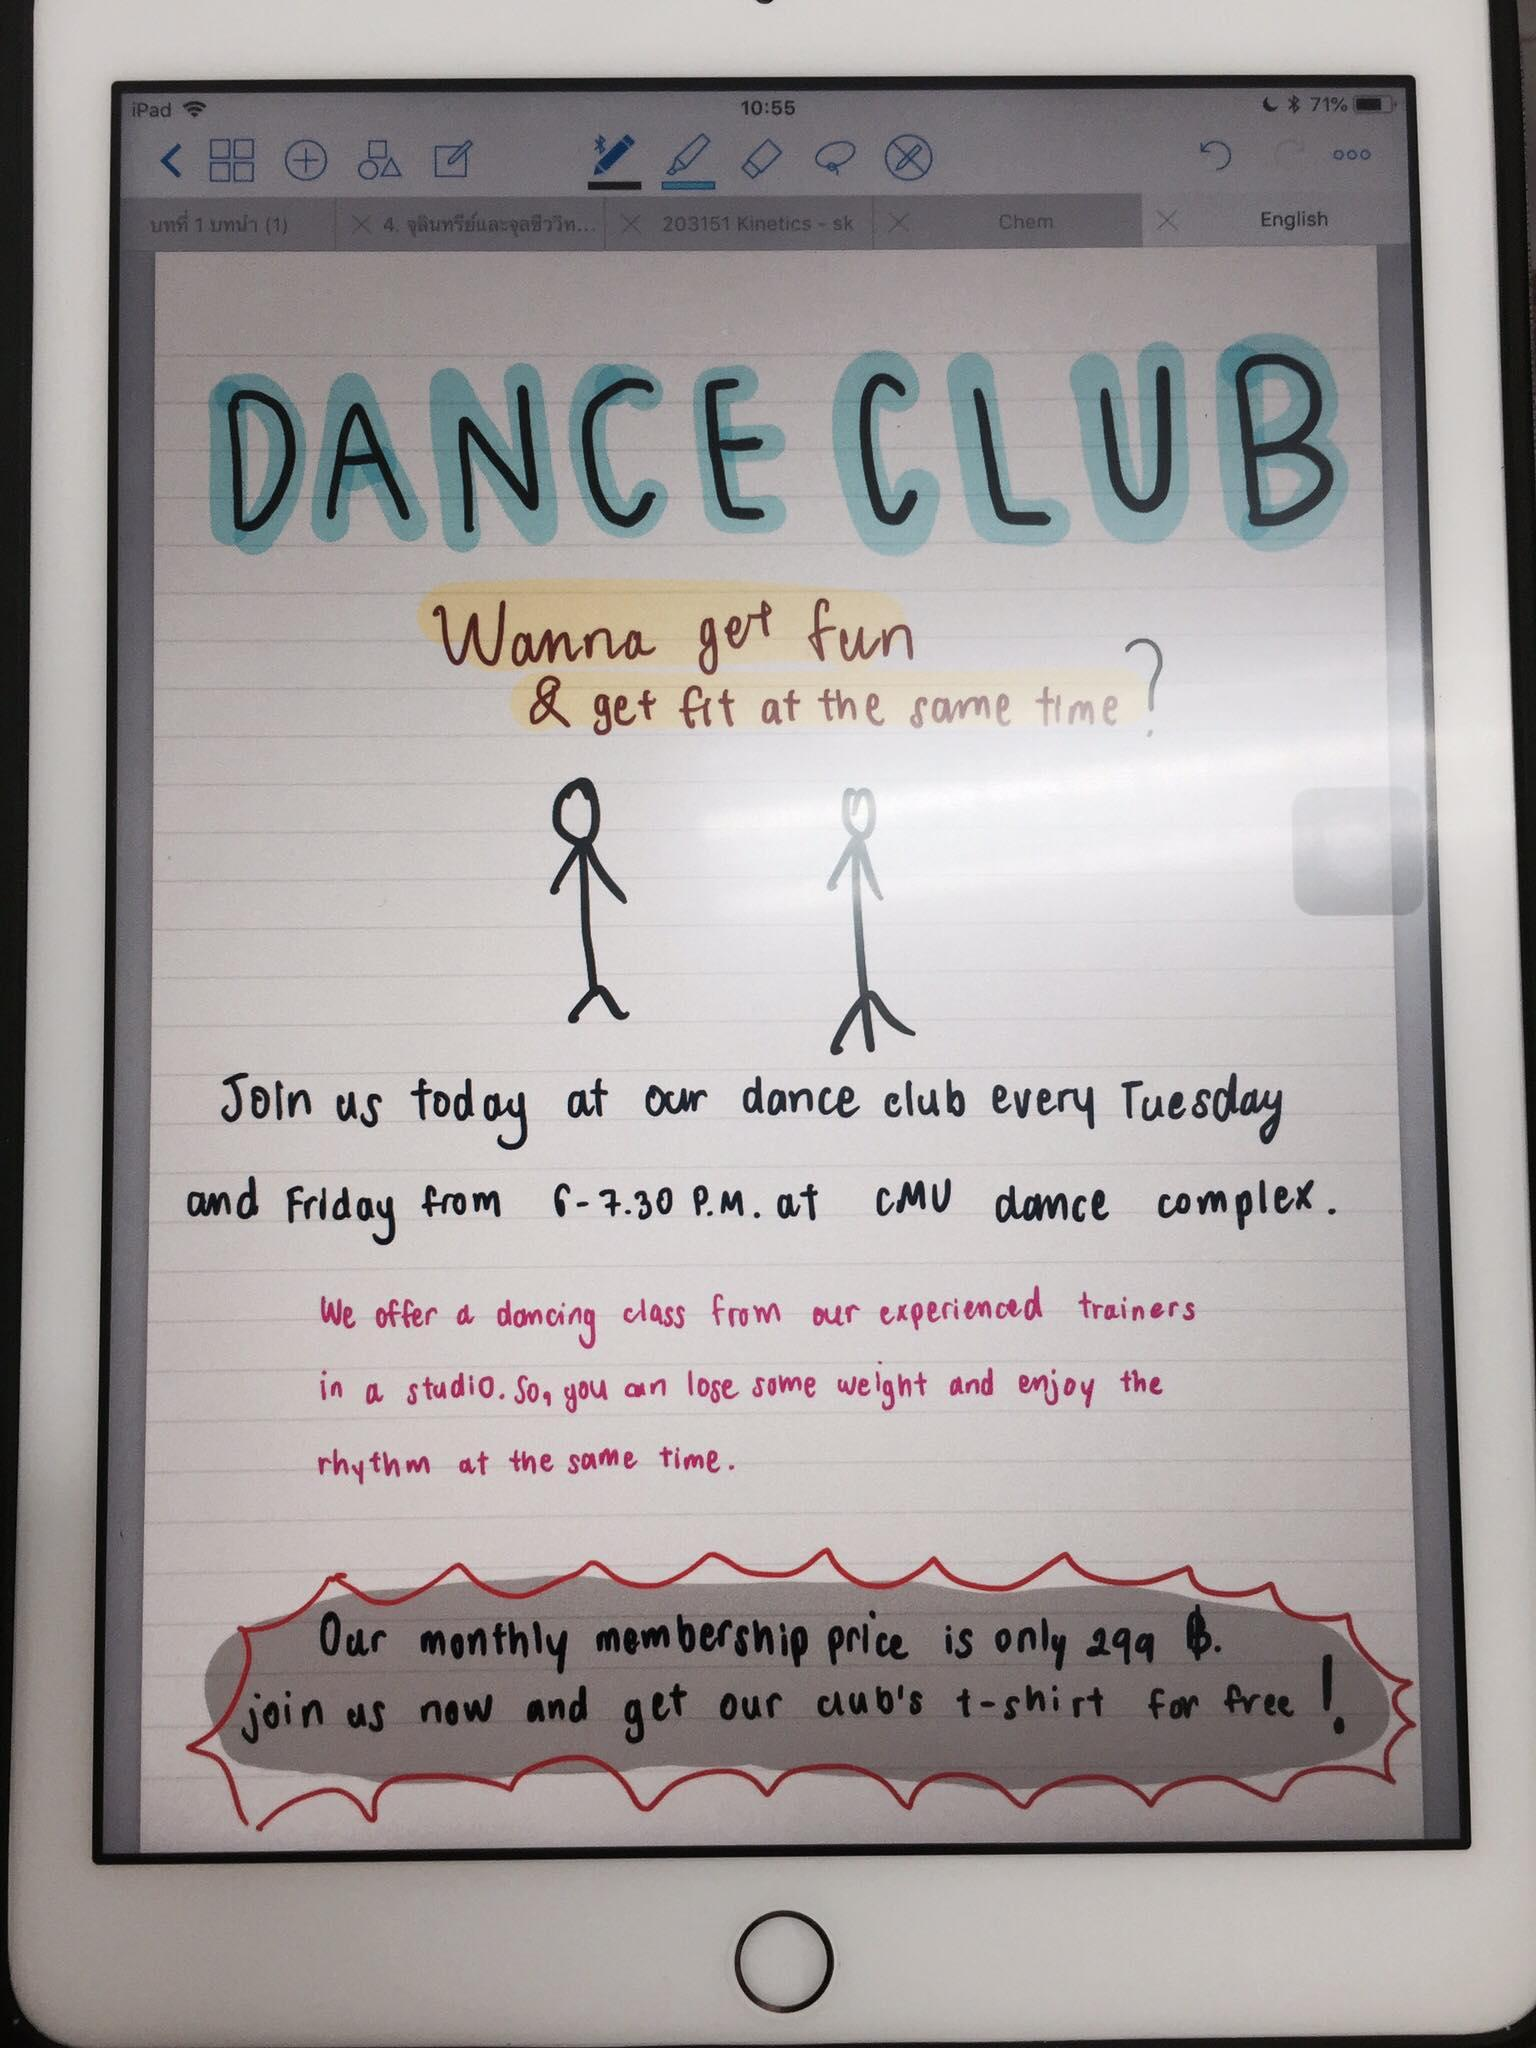 iPad
10:55
71%
บทที่ 1 บทนำ (1)
4. จุลินทรีย์และจุลชีววิท...
203151 Kinetics - sk
Chem
English
DANCE CLUB
Wanna get fun
& get fit at the same time?
Join us today at our dance club every Tuesday
and Friday from 6-7.30 P.M. at CMU dance complex.
We offer a dancing class from our experienced trainers
in a studio. So, you can lose some weight and enjoy the
rhythm at the same time.
Our monthly membership price is only 299 ฿.
join us now and get our club's t-shirt for free!